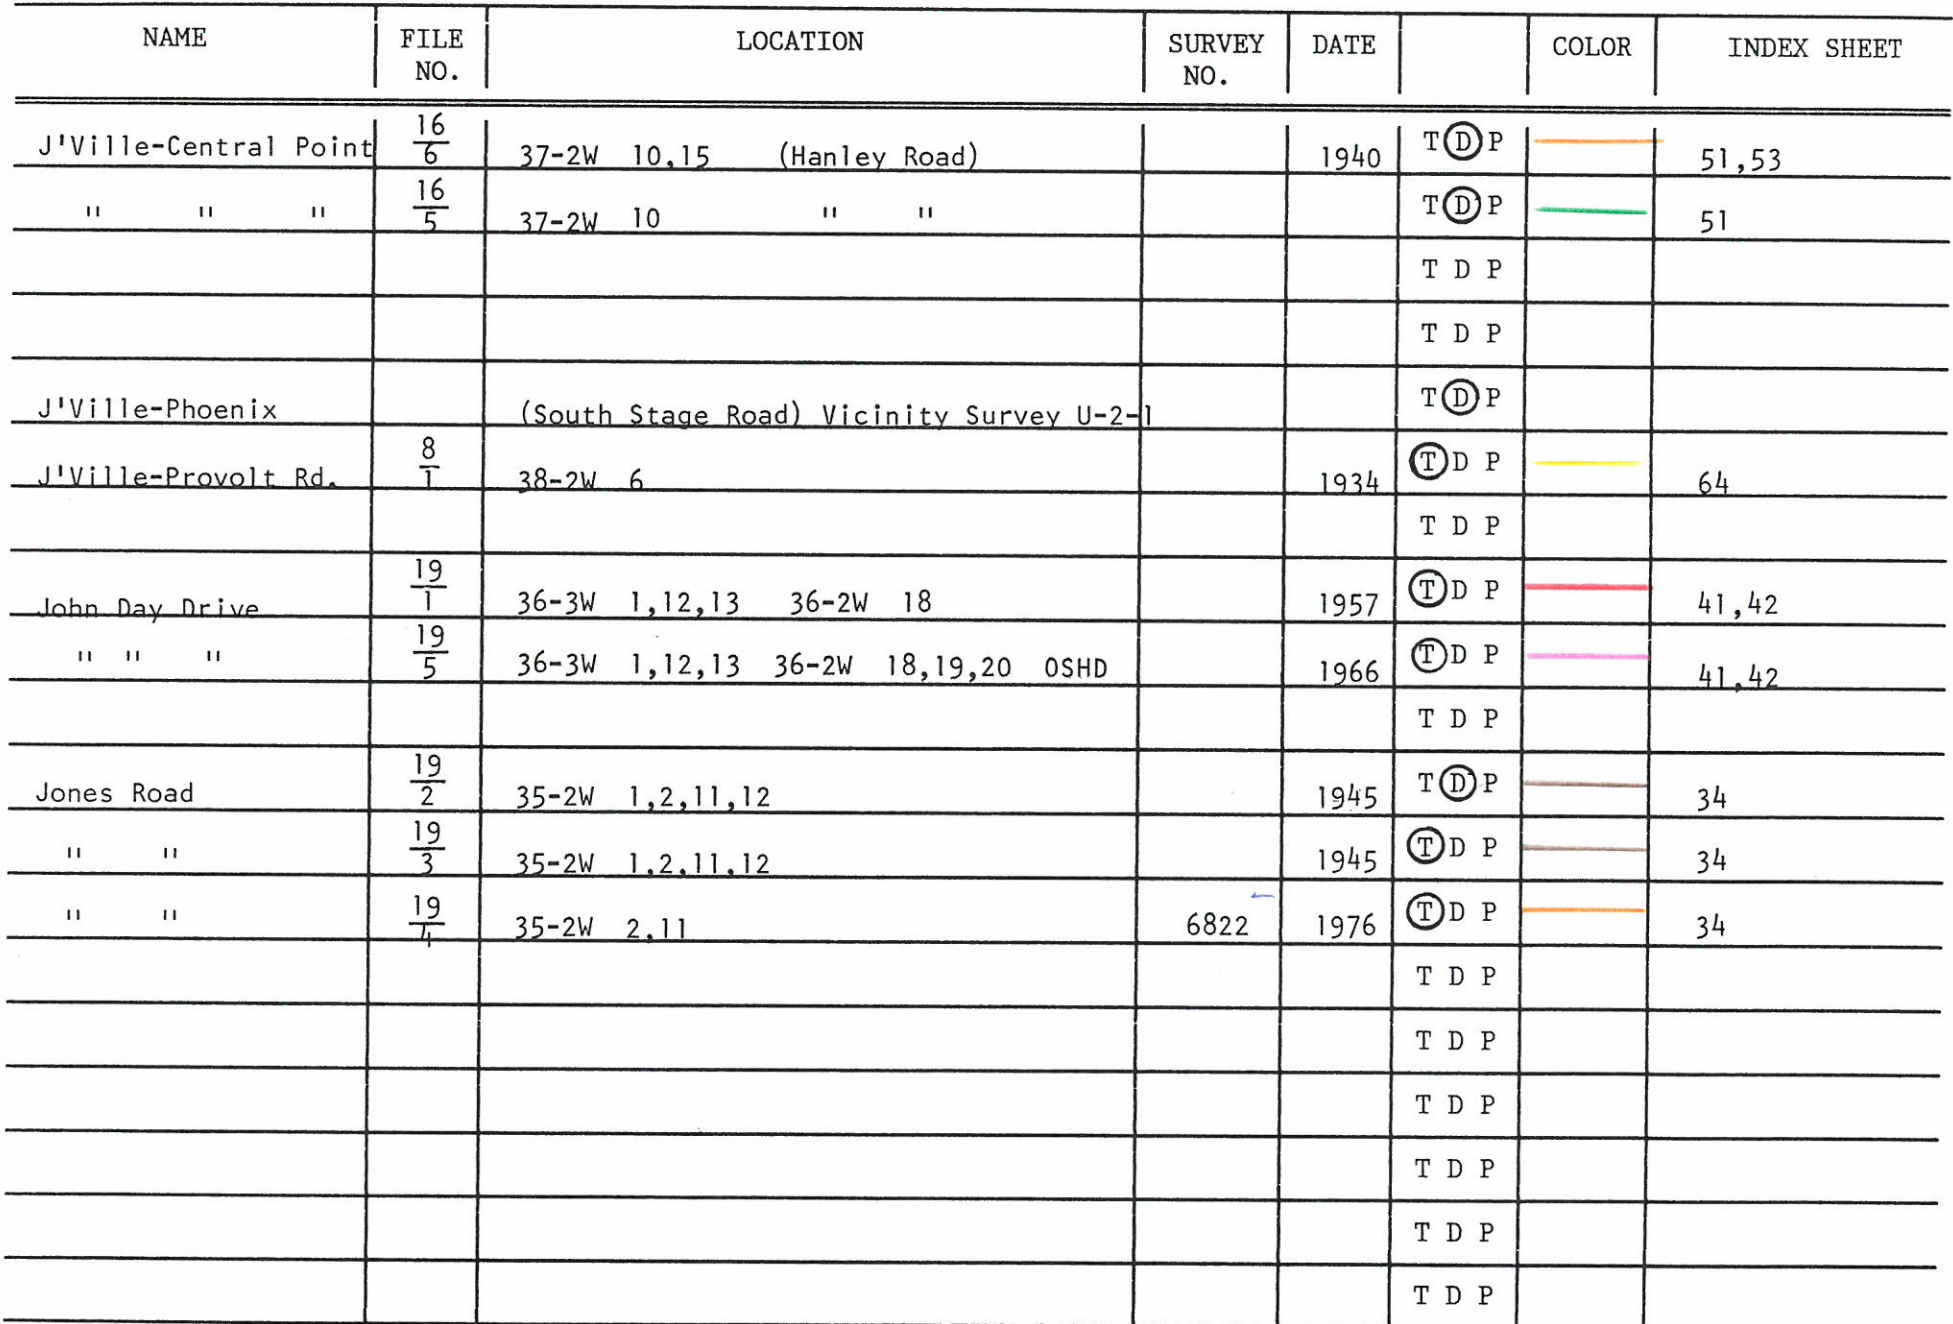 NAME FILE NO. LOCATION SURVEY NO. DATE COLOR INDEX SHEET
J'Ville-Central Point 16/6 37-2W 10,15 (Hanley Road) 1940 T D P 51,53
" " " 16/5 37-2W 10 " " T D P 51
T D P
T D P
J'Ville-Phoenix (South Stage Road) Vicinity Survey U-2-1 T D P
J'Ville-Provolt Rd. 8/1 38-2W 6 1934 T D P 64
T D P
John Day Drive 19/1 36-3W 1,12,13 36-2W 18 1957 T D P 41,42
" " " 19/5 36-3W 1,12,13 36-2W 18,19,20 OSHD 1966 T D P 41,42
T D P
Jones Road 19/2 35-2W 1,2,11,12 1945 T D P 34
" " 19/3 35-2W 1,2,11,12 1945 T D P 34
" " 19/4 35-2W 2,11 6822 1976 T D P 34
T D P
T D P
T D P
T D P
T D P
T D P